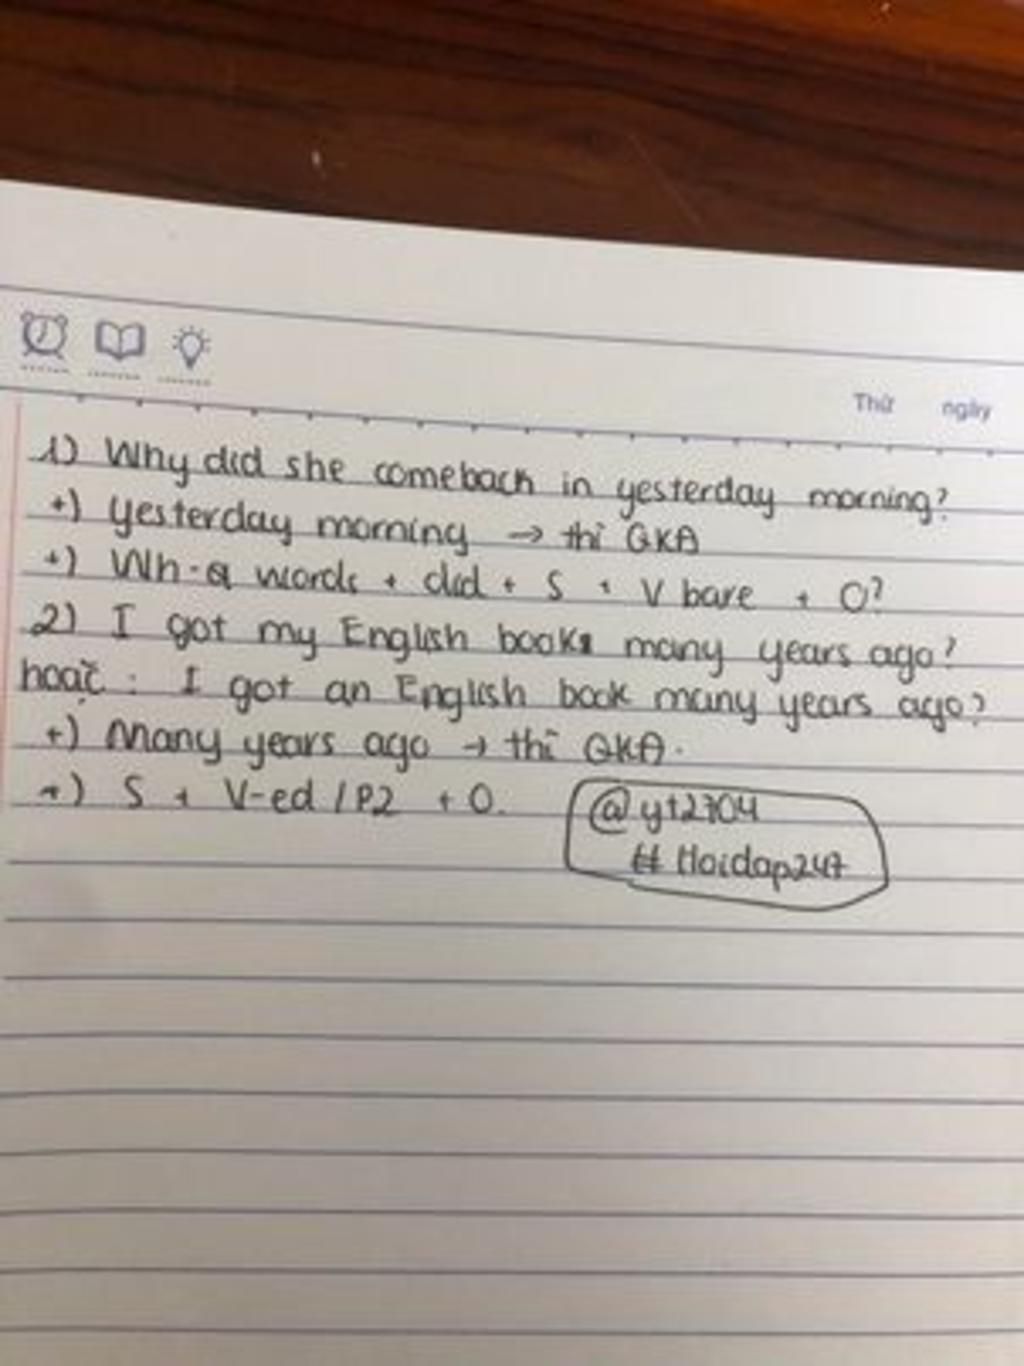 Thứ ngày
1) Why did she comeback in yesterday morning?
+) yesterday morning → thì QKĐ
+) Wh-Q words + did + S + V bare + O?
2) I got my English books many years ago?
hoặc : I got an English book many years ago?
+) Many years ago → thì QKĐ.
+) S + V-ed / P2 + O.
@yt2704
# Hoidap247